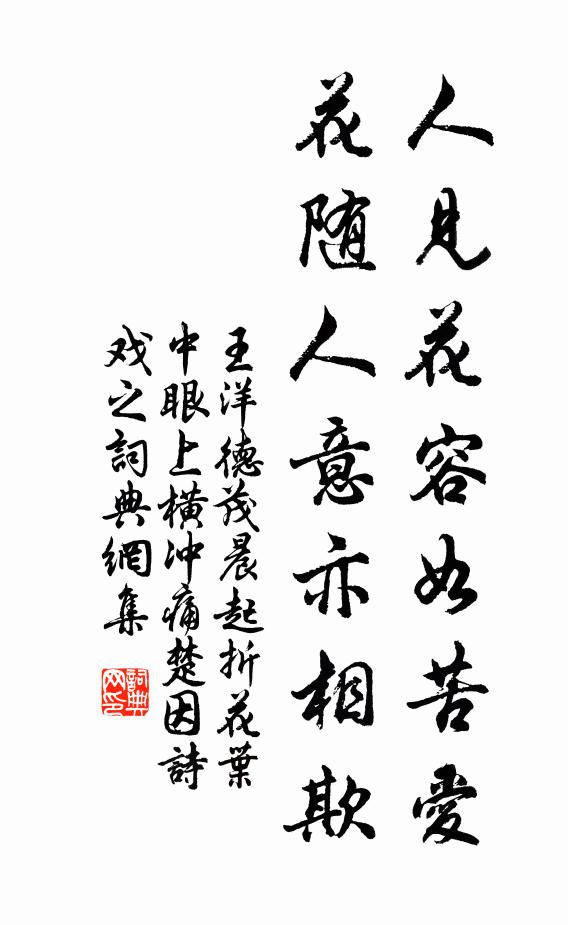 人見花容如苦愛
花随人意亦相欺
王洋德茂晨起折花葉
中眼上橫沖痛楚因詩
戏之詞典網集
詞典网印